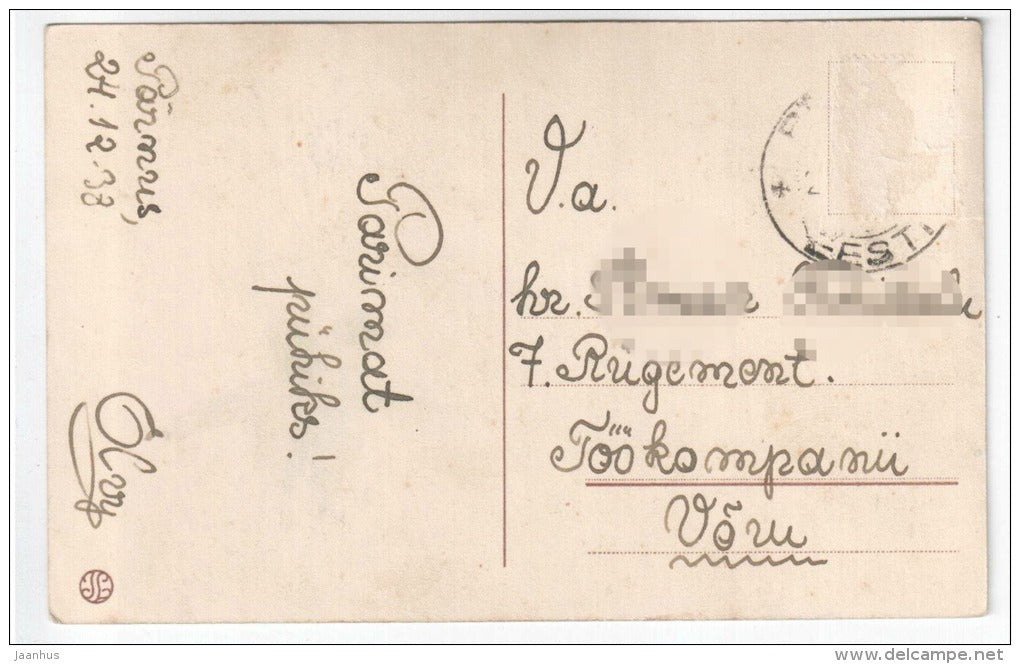 Pärnus,
24.12.38
Parimat
pühiks!
Olny
V.a.
hr.
7. Rügement.
Töökompanii
Võru
EESTI
jaanhus
www.delcampe.net